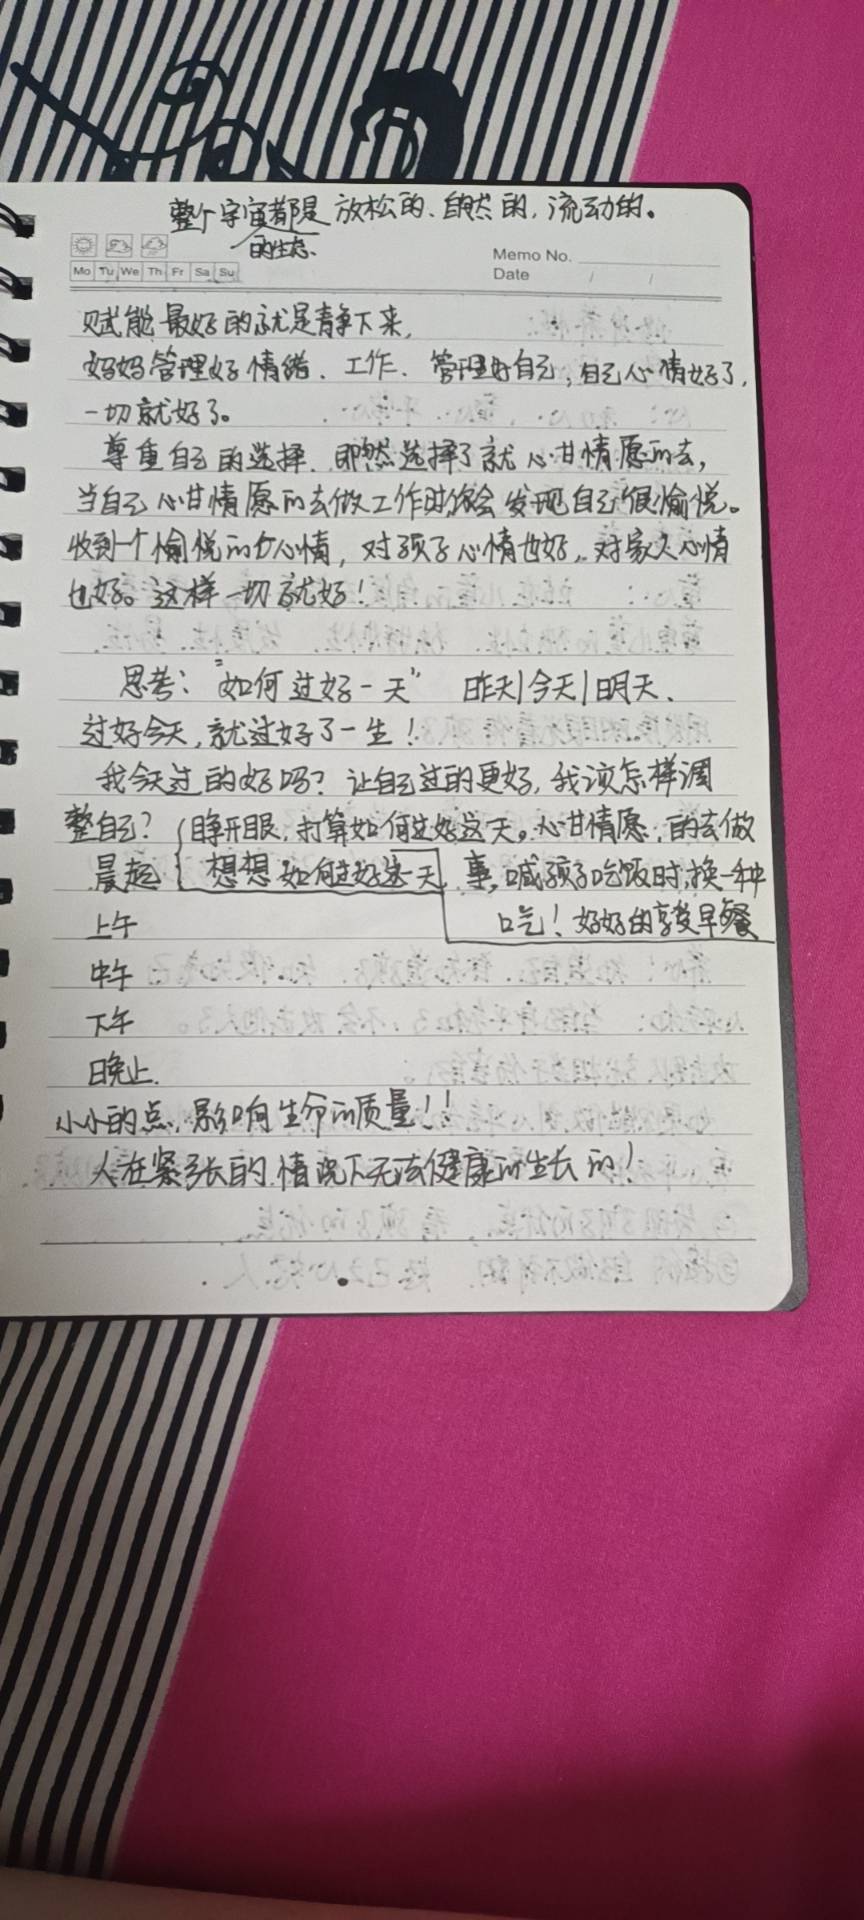 整个宇宙都是放松的、自然的,流动的。
的生态、
Memo No.
Mo Tu We Th Fr Sa Su
Date / /
赋能最好的就是静下来,
妈妈管理好情绪、工作、管理好自己,自己心情好了,
一切就好了。
尊重自己的选择、即然选择了就心甘情愿的去,
当自己心甘情愿的去做工作时你会发现自己很愉悦。
收到一个愉悦的心情,对孩子心情也好,对家人心情
也好。这样一切就好!
思考:"如何过好一天" 昨天|今天|明天、
过好今天,就过好了一生!
我今天过的好吗?让自己过的更好,我该怎样调
整自己?{睁开眼,打算如何过好这天。心甘情愿,的去做
晨起 想想如何过好这一天 事,喊孩子吃饭时,换一种
上午 吃!好好的享受早餐
中午
下午
晚上.
小小的点,影响生命的质量!!
人在紧张的情况下无法健康的生长的!